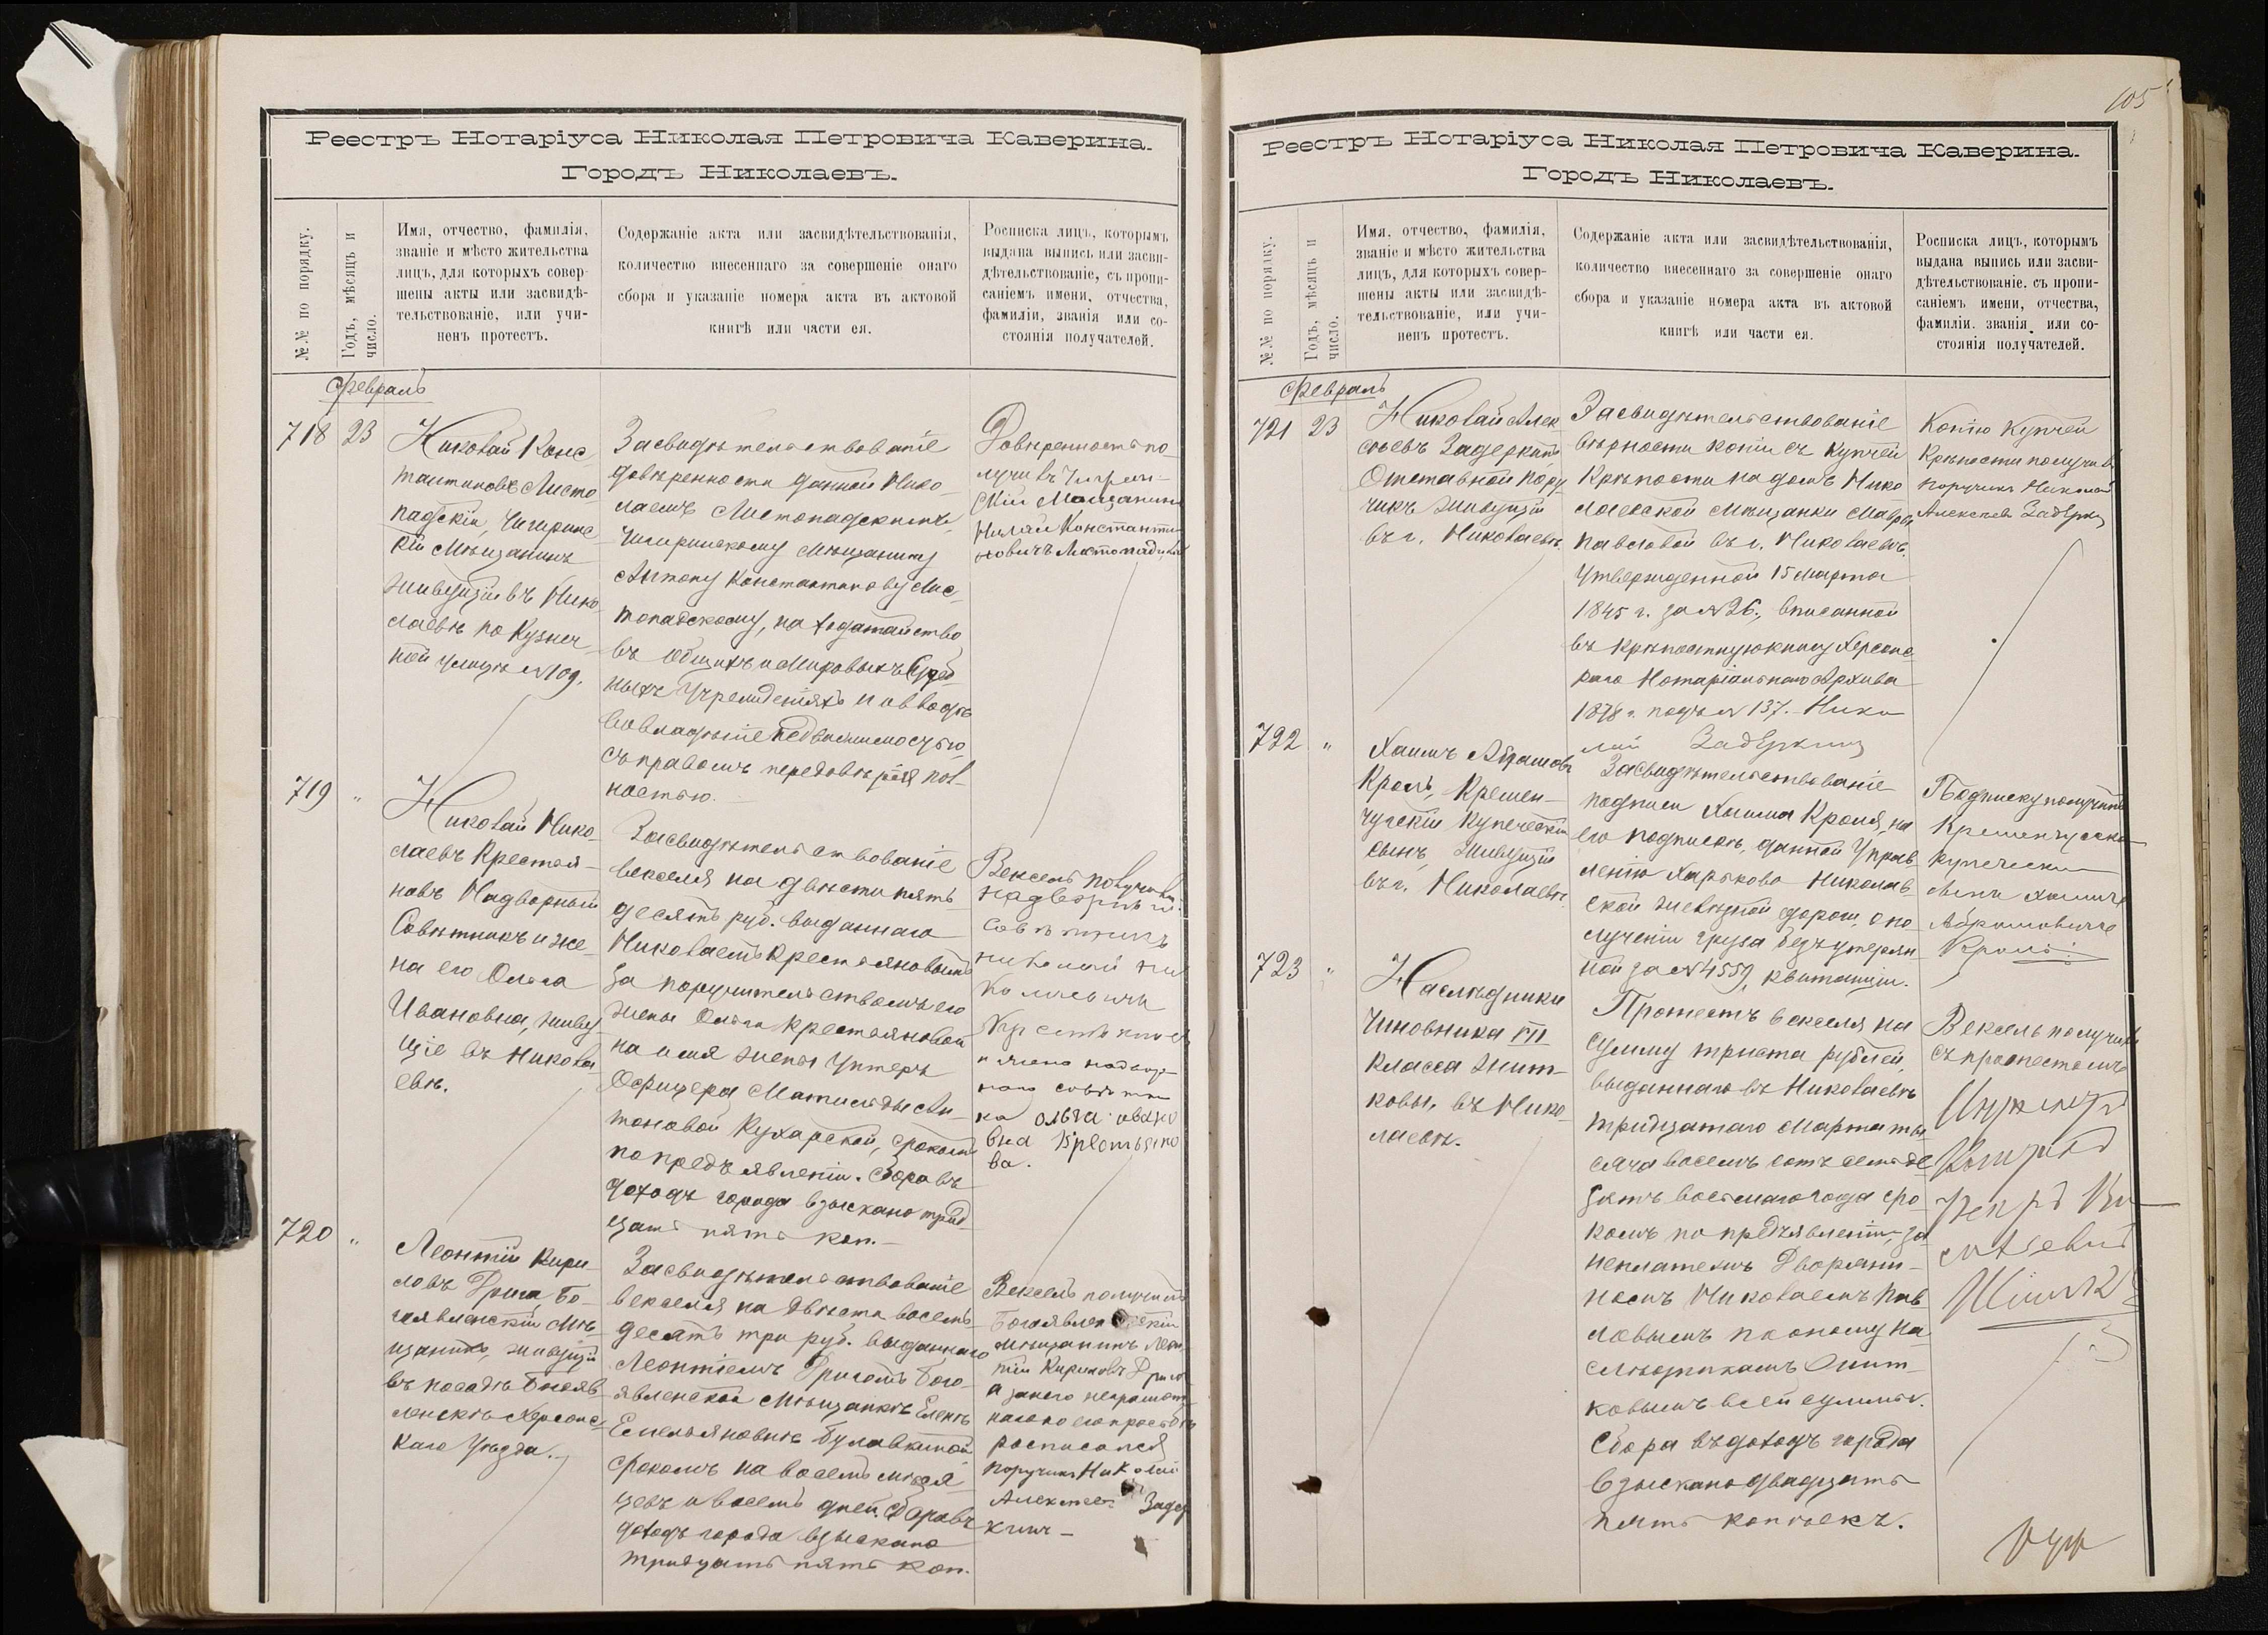 Реестръ Нотаріуса Николая Петровича Каверина.
Городъ Николаевъ.
№№ по порядку.
Годъ, мѣсяцъ и
число.
Имя, отчество, фамилія,
званіе и мѣсто жительства
лицъ, для которыхъ совер-
шены акты или засвидѣ-
тельствованіе, или учи-
ненъ протестъ.
Содержаніе акта или засвидѣтельствованія,
количество внесеннаго за совершеніе онаго
сбора и указаніе номера акта въ актовой
книгѣ или части ея.
Росписка лицъ, которымъ
выдана выпись или засви-
дѣтельствованіе, съ пропи-
саніемъ имени, отчества,
фамиліи, званія или со-
стоянія получателей.
Февраль
718 23
Николай Конс
тантиновъ Листо
падскій, Чигиринс
кій мѣщанинъ
живущій въ Нико
лаевѣ по Кузнеч
ной улицѣ №109.
Засвидѣтельствованіе
довѣренности данной Нико-
лаемъ Листопадскимъ
Чигиринскому мѣщанину
Антону Константинову Лис-
топадскому, на ходатайство
въ общихъ и Мировыхъ Судеб
ныхъ Учрежденіяхъ и о вводѣ
во владѣніе недвижимостью,
съ правомъ передовѣрія пол
ностью.
Довѣренность по
лучивъ Чигрин-
скій Мещанинъ
Нилай Константи
новичъ Листопадскій
719 "
Николай Нико
лаевъ Крестья-
новъ Надворный
Совѣтникъ и же-
на его Ольга
Ивановна, живу
щіе въ Никола
евѣ.
Засвидѣтельствованіе
векселя на двѣсти пять
десятъ руб. выданнаго
Николаемъ Крестьяновымъ
за поручительствомъ его
жены Ольги Крестьяновой
на имя жены Унтеръ
Офицера Матильды Ан-
тоновой Кухарской, срокомъ
по предъявленіи. Сбора въ
доходъ города взыскано трид
цать пять коп.
Вексель получили
надворный
совѣтникъ
николай ни
колаевичъ
Крестьяновъ
и жена надвор-
наго совѣтни
ка ольга ивано
вна Крестьяно
ва.
720 "
Леонтій Кири-
ловъ Дрига Бо-
гоявленскій мѣ-
щанинъ, живущій
въ посадѣ Богояв
ленскѣ Херсонс
каго Уѣзда.
Засвидѣтельствованіе
векселя на двѣста восемь
десятъ три руб. выданнаго
Леонтіемъ Дригомъ Бого-
явленской мѣщанкѣ Еленѣ
Емельяновнѣ Булавкиной
срокомъ на восемь мѣся
цевъ и восемь дней. Сбора въ
доходъ города взыскано
тридцать пять коп.
Вексель получилъ
Богоявленскій
мѣщанинъ Леон
тій Кириловъ Дрига
а за него неграмот
наго по его просьбѣ
росписался
поручикъ Николай
Алексеевъ Задер
кинъ
105
Реестръ Нотаріуса Николая Петровича Каверина.
Городъ Николаевъ.
№№ по порядку.
Годъ, мѣсяцъ и
число.
Имя, отчество, фамилія,
званіе и мѣсто жительства
лицъ, для которыхъ совер-
шены акты или засвидѣ-
тельствованіе, или учи-
ненъ протестъ.
Содержаніе акта или засвидѣтельствованія,
количество внесеннаго за совершеніе онаго
сбора и указаніе номера акта въ актовой
книгѣ или части ея.
Росписка лицъ, которымъ
выдана выпись или засви-
дѣтельствованіе, съ пропи-
саніемъ имени, отчества,
фамиліи, званія или со-
стоянія получателей.
Февраль
721 23
Николай Алек
сѣевъ Задеркинъ
Отставной Пору
чикъ живущій
въ г. Николаевѣ.
Засвидѣтельствованіе
вѣрности копіи съ Купчей
Крѣпости на домъ Нико
лаевской мѣщанки Мавры
Павловой въ г. Николаевѣ,
утвержденной 15 Марта
1845 г. за №26, вписанной
въ крѣпостную книгу Херсонс
каго Нотаріальнаго Архива
1878 г. подъ № 137. Нико
лай Задеркинъ
Копію Купчей
Крѣпости получилъ
поручикъ Николай
Алексеевъ Задеркинъ
722 "
Хаимъ Абрамовъ
Кроль, Кремен-
чугскій Купеческій
сынъ, живущій
въ г. Николаевѣ.
Засвидѣтельствованіе
подписи Хаима Кроля, на
его подпискѣ, данной Управ
ленію Харьково Николаев
ской желѣзной дороги, о по
лученіи груза безъ утерян
ной за №4559, квитанціи.
Подписку получилъ
Кременчугска
купечески
сынъ Хаимъ
Абрамовичъ
Кроль
723 "
Наслѣдники
Чиновника VII
класса Жит-
ковы, въ Нико
лаевѣ.
Протестъ векселя на
сумму триста рублей,
выданнаго въ Николаевѣ
тридцатаго Марта ты
сяча восемь сотъ семьде
сятъ восьмаго года сро
комъ по предъявленіи, за
неплатежъ Дворяни-
номъ Николаемъ Пав
ловымъ по оному на
слѣдникамъ Жит-
ковымъ всей суммы.
Сбора въ доходъ города
взыскано двадцать
пять копѣекъ.
Вексель получилъ
съ протестомъ